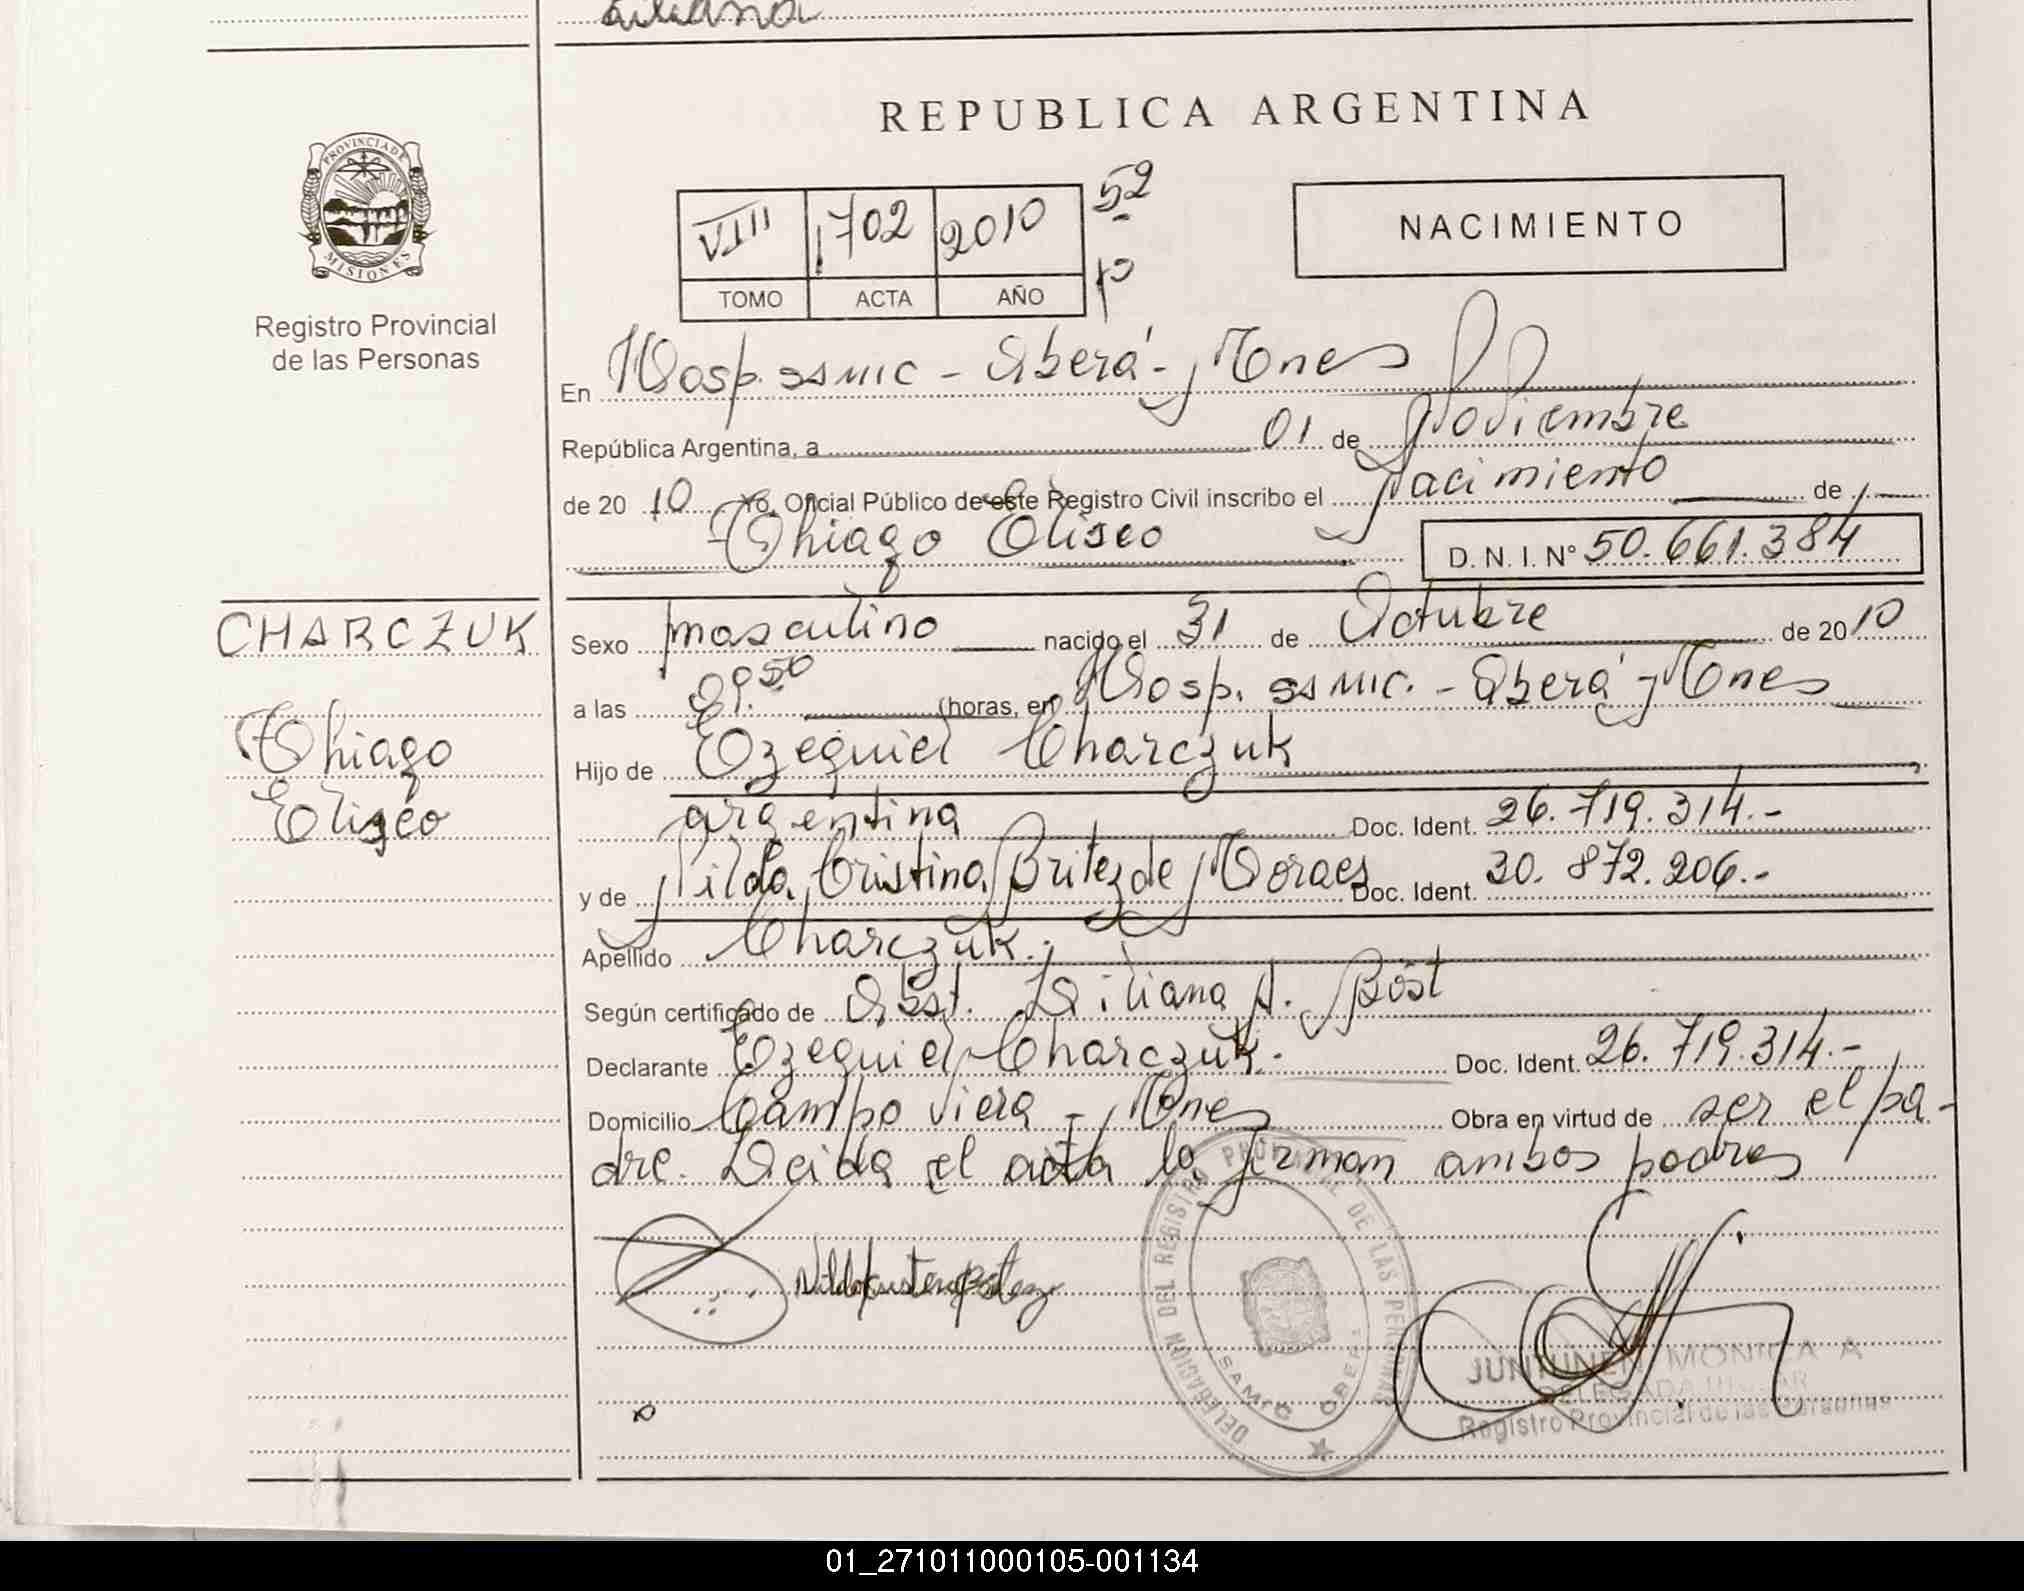 Liliana
REPUBLICA ARGENTINA
PROVINCIA DE
MISIONES
Registro Provincial
de las Personas
VIII 1702 2010 52
TOMO ACTA AÑO
NACIMIENTO
En Hosp. SAMIC - Oberá - Mnes
República Argentina, a 01 de Noviembre
de 20 10 Yo, Oficial Público de este Registro Civil inscribo el Nacimiento de
Thiago Eliseo D. N. I. N° 50.661.384
CHARCZUK
Thiago
Eliseo
Sexo masculino nacido el 31 de Octubre de 20 10
a las 09.50 (horas, en Hosp. SAMIC. - Oberá - Mnes
Hijo de Ezequiel Charczuk
argentina Doc. Ident. 26.719.314.-
y de Nilda Cristina Britez de Moraes Doc. Ident. 30.872.206.-
Apellido Charczuk.
Según certificado de Obst. Liliana A. Bost
Declarante Ezequiel Charczuk. Doc. Ident. 26.719.314.-
Domicilio Campo Viera - Mnes Obra en virtud de ser el pa-
dre. Leida el acta la firman ambos padres
DELEGACION DEL REGISTRO PROVINCIAL DE LAS PERSONAS
SAMIC OBERA
JUNTUNEN MONICA A
DELEGADA TITULAR
Registro Provincial de las Personas
01_271011000105-001134